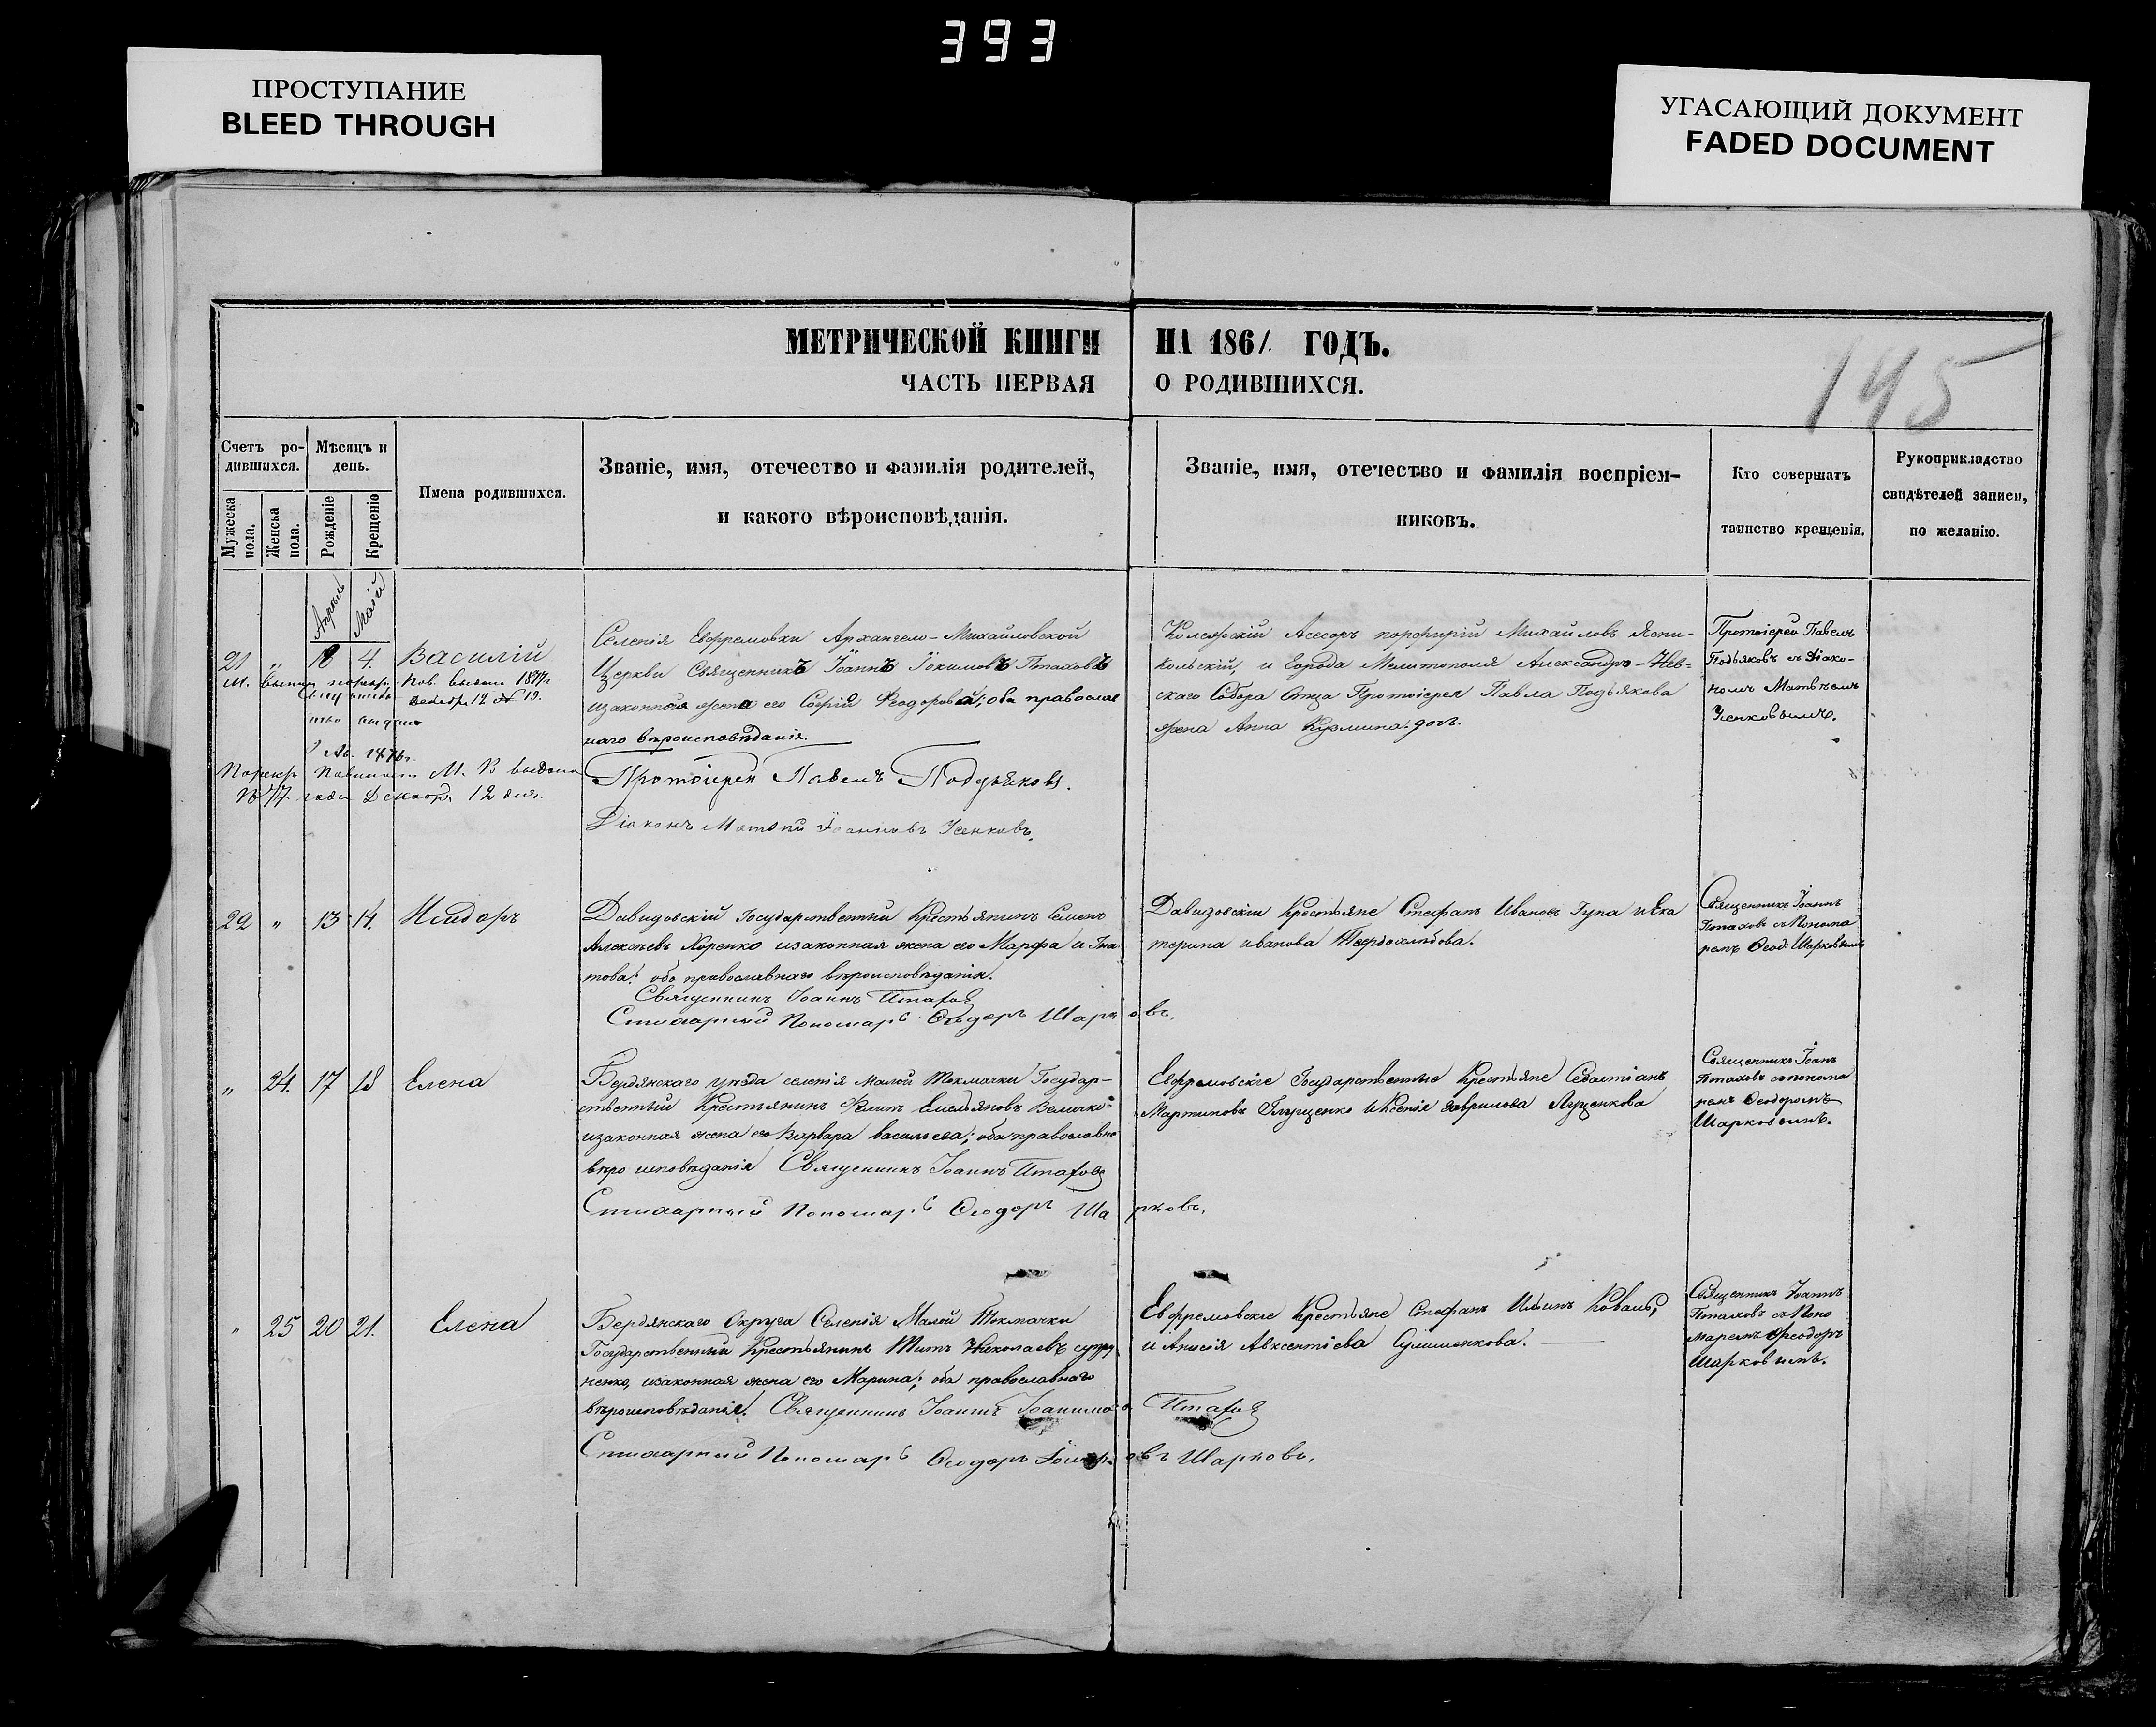 393
ПРОСТУПАНИЕ
BLEED THROUGH
УГАСАЮЩИЙ ДОКУМЕНТ
FADED DOCUMENT
МЕТРИЧЕСКОЙ КНИГИ НА 1861. ГОДЪ.
ЧАСТЬ ПЕРВАЯ О РОДИВШИХСЯ.
145
Счетъ ро-
дившихся.
Мужеска пола.
Женска пола.
Мѣсяцъ и
день.
Рожденіе
Крещенію
Имена родившихся.
Званіе, имя, отечество и фамилія родителей,
и какого вѣроисповѣданія.
Званіе, имя, отечество и фамилія воспріем-
никовъ.
Кто совершатъ
таинство крещенія.
Рукоприкладство
свидѣтелей записи,
по желанію.
Апрѣль
Маій
21 „ 18 4. Василій
Селенія Ефремовки Архангело-Михайловской
Церкви Священникъ Іоаннъ Іокимовъ Птаховъ
изаконная жена его Софія Феодорова; оба православ
наго вѣроисповѣданія.
Протоіерей Павелъ Подъяковъ.
Діаконъ Матвѣй Іоанновъ Усенковъ.
Колежскій Асесоръ порфирій Михайловъ Яни-
кольскій, и Города Мелитополя Александро-Нев-
скаго Собора Отца Протоіерея Павла Подъякова
жена Анна Кузмина. дочь.
Протоіерей Павелъ
Подъяковъ съ Діако-
номъ Матвѣемъ
Усенковымъ.
Декабр. 12 № 19.
1876 г.
М. В выдана
1877 года Декабр. 12 дня.
22 „ 13 14. Исидоръ
Давидовскій Государственный Крестьянинъ Семенъ
Алексѣевъ Коренко изаконная жена его Марфа и Гна
това; оба православнаго вѣроисповѣданія.
Священникъ Іоаннъ Птаховъ
Стихарный Пономарь Ѳеодоръ Шарковъ.
Давидовскіи Крестьяне Стефанъ Ивановъ Гупа и Ека
терина иванова Твердохлѣбова.
Священникъ Іоаннъ
Птаховъ съ Понома
ремъ Ѳеод: Шарковымъ
„ 24. 17 18 Елена
Бердянскаго уѣзда селенія Малой Токмачки Государ-
ственный Крестьянинъ Филипъ Емельяновъ Величко
изаконная жена его Варвара васильева; оба православно
вѣро исповѣданія Священникъ Іоаннъ Птаховъ
Стихарный Пономарь Ѳеодоръ Шарковъ.
Ефремовскіе Государственные Крестьяне Севастіанъ
Мартиновъ Глущенко и Ксенія гаврилова Луценкова
Священникъ Іоанъ
Птаховъ съ понома
ремъ Ѳеодоромъ
Шарковымъ.
„ 25 20 21. Елена
Бердянскаго Округа Селенія Малой Токмачки
Государственный Крестьянинъ Титъ Николаевъ супру
ненко, изаконная жена его Марина; оба православнаго
вѣроисповѣданія. Священникъ Іоаннъ Іоакимовъ Птаховъ
Стихарный Пономарь Ѳеодоръ Шарковъ.
Ефремовскіе Крестьяне Стефанъ Ильинъ Коваль,
и Анисія Авксентіева Сулименкова.
Священникъ Іоаннъ
Птаховъ съ Поно
маремъ Феодоръ
Шарковымъ.